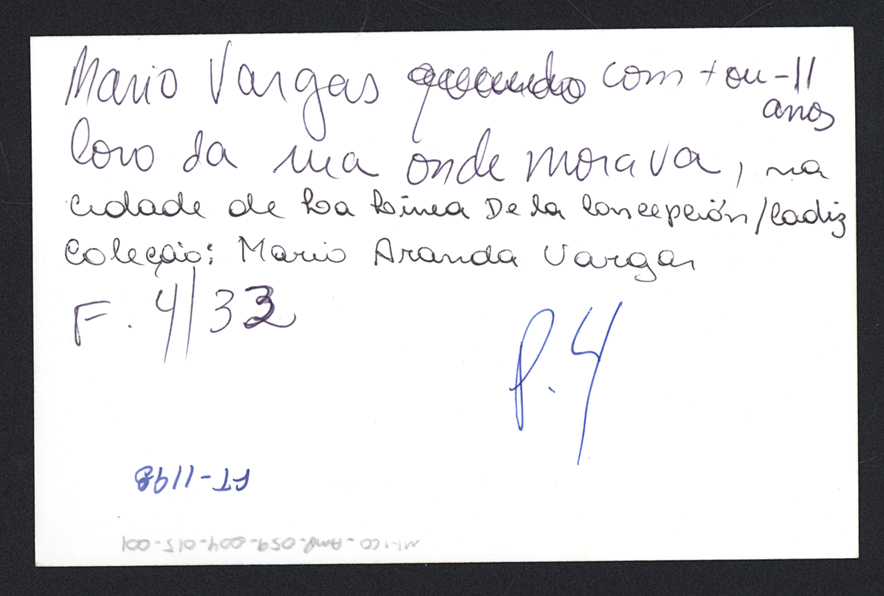 Mario Vargas quando com + ou - 11
anos
da rua onde morava, na
cidade de La Linea De la Concepción/Cadiz
Coleção: Mario Aranda Vargas
F. 4/33
P. 4
FT-1198